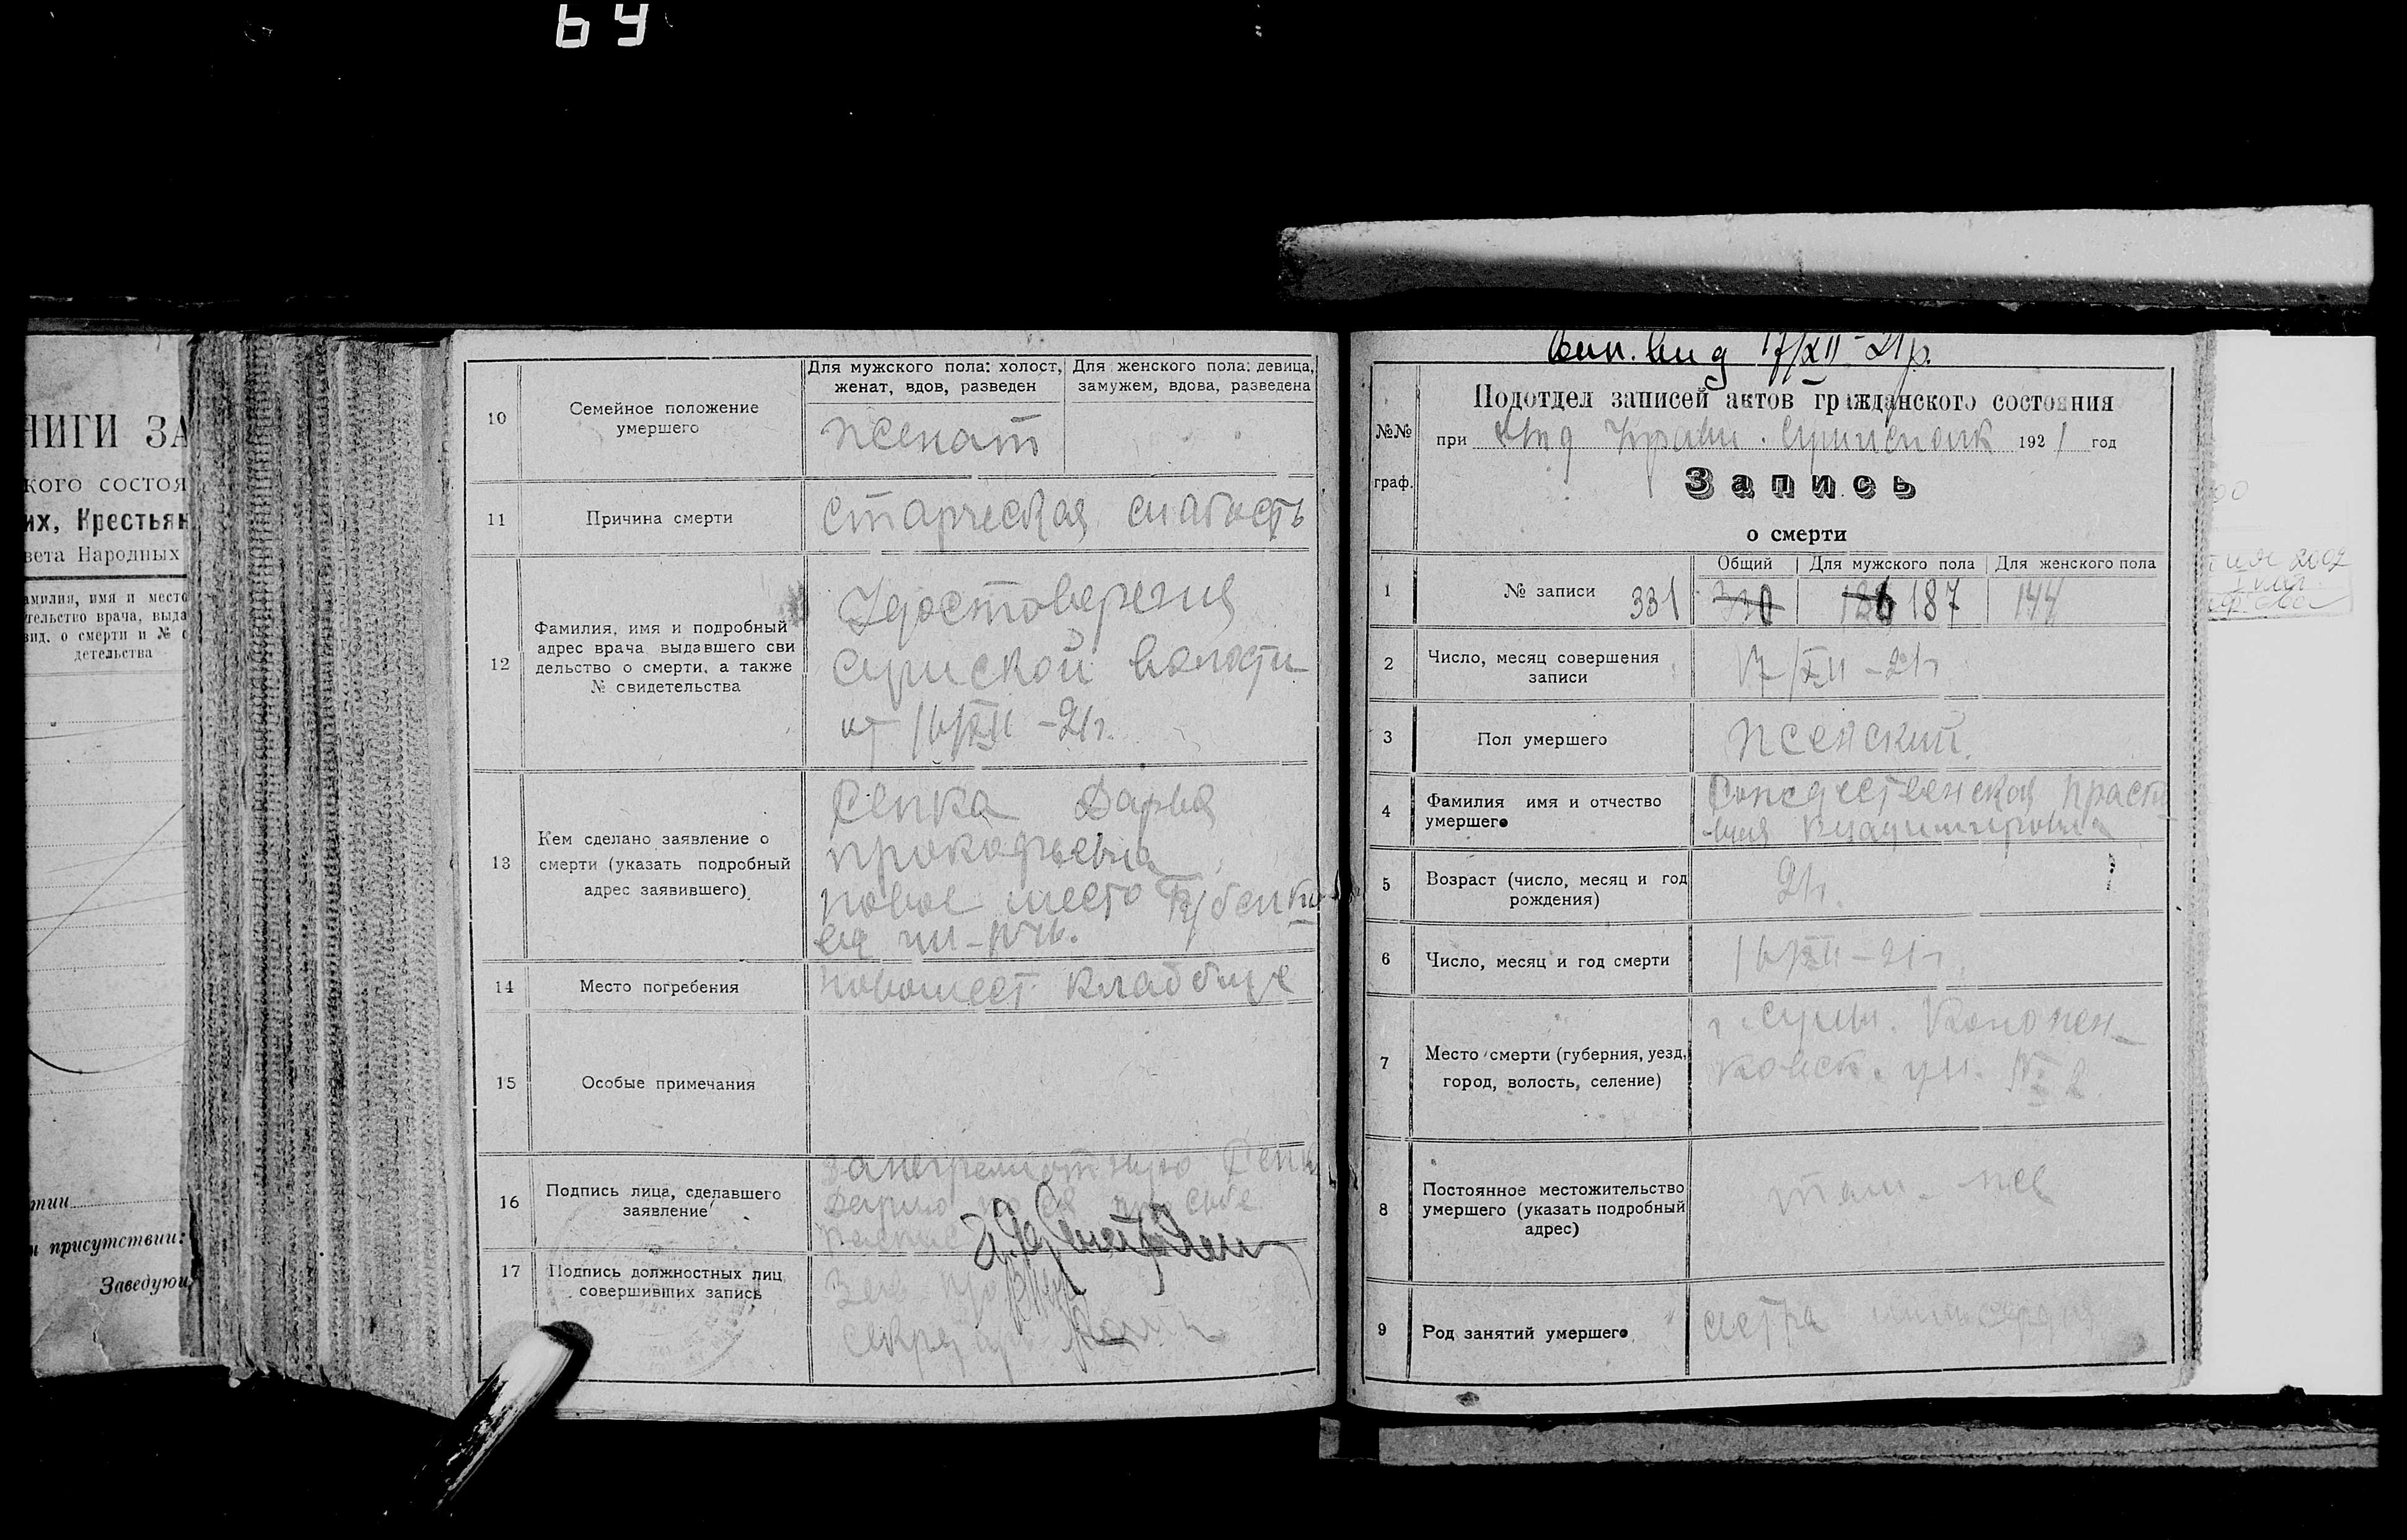 64
НИГИ ЗА
кого состоя
их, Крестьян
вета Народных
амилия, имя и место
тельство врача, выда
вид. о смерти и № с
детельства
тии
и присутствии:
Заведую
10
Семейное положение
умершего
Для мужского пола: холост,
женат, вдов, разведен
Для женского пола: девица,
замужем, вдова, разведена
женат
11
Причина смерти
старческая слабость
12
Фамилия, имя и подробный
адрес врача выдавшего сви
дельство о смерти, а также
№ свидетельства
Удостоверения
сумской волости
от 16/XII - 21г.
13
Кем сделано заявление о
смерти (указать подробный
адрес заявившего)
Репка Дарья
прокофьевна
новое место
14
Место погребения
новомест кладбище
15
Особые примечания
16
Подпись лица, сделавшего
заявление
за неграмотную Репк
Дарию по ея прозьбе
17
Подпись должностных лиц,
совершивших запись
Зав
секретарь
17/XII - 21р.
№№
граф.
Подотдел записей актов гражданского состояния
при 1921 год
Запись
о смерти
1
№ записи 331
Общий
Для мужского пола
Для женского пола
330
186 187
144
2
Число, месяц совершения
записи
17/XII - 21г
3
Пол умершего
женский
4
Фамилия имя и отчество
умершего
Рождественская Праско
вия Владимировна
5
Возраст (число, месяц и год
рождения)
21г.
6
Число, месяц и год смерти
16/XII - 21г.
7
Место смерти (губерния, уезд,
город, волость, селение)
г. Сумы. Кононен-
ковск. ул. № 2
8
Постоянное местожительство
умершего (указать подробный
адрес)
там-же
9
Род занятий умершего
сестра милосердия